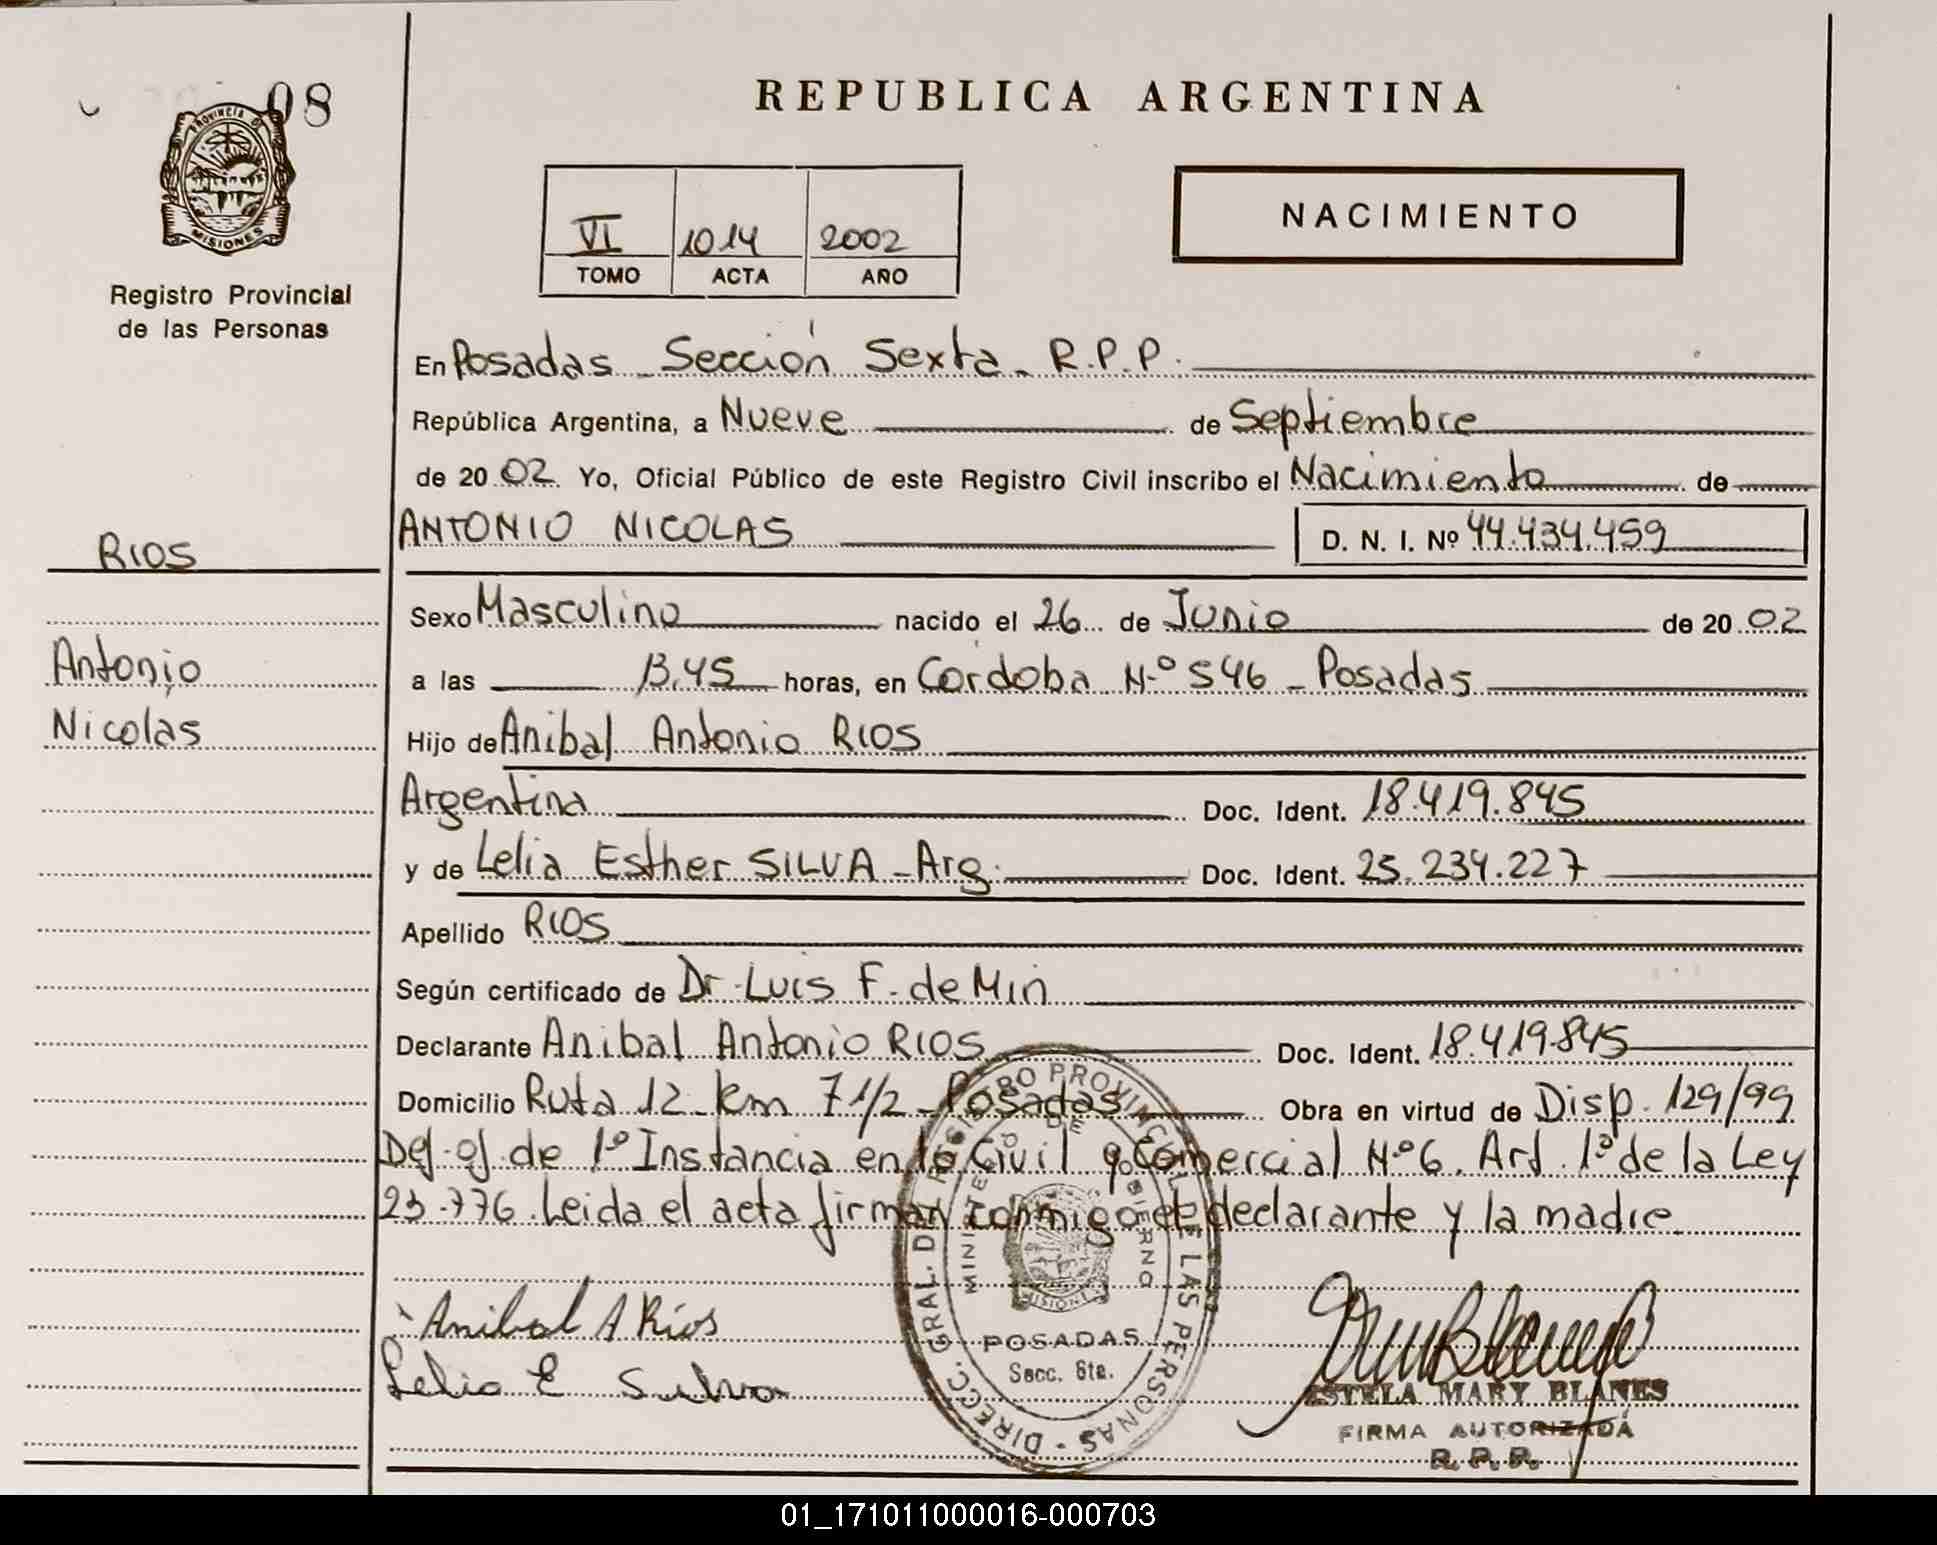 08
PROVINCIA DE
MISIONES
Registro Provincial
de las Personas
REPUBLICA ARGENTINA
NACIMIENTO
VI 1014 2002
TOMO ACTA AÑO
En Posadas - Sección Sexta - R.P.P.
República Argentina, a Nueve de Septiembre
de 2002 Yo, Oficial Público de este Registro Civil inscribo el Nacimiento de
ANTONIO NICOLAS D. N. I. Nº 44.434.459
RIOS
Antonio
Nicolas
Sexo Masculino nacido el 26 de Junio de 2002
a las 13,45 horas, en Cordoba N.º 546 - Posadas
Hijo de Anibal Antonio RIOS
Argentina Doc. Ident. 18.419.845
y de Lelia Esther SILVA - Arg. Doc. Ident. 25.234.227
Apellido RIOS
Según certificado de Dr. Luis F. de Min
Declarante Anibal Antonio RIOS Doc. Ident. 18.419.845
Domicilio Ruta 12 km 7 1/2 - Posadas Obra en virtud de Disp. 129/99
Def. of. de 1º Instancia en lo Civil y Comercial Nº 6. Art. 1º de la Ley
23.776. Leida el acta firman conmigo el declarante y la madre
Anibal A Ríos
Lelia E Silva
DIRECC. GRAL. DEL REGISTRO PROVINCIAL DE LAS PERSONAS
MINISTERIO DE GOBIERNO
MISIONES
POSADAS
Secc. 6ta.
ESTELA MARY BLANES
FIRMA AUTORIZADA
R. P. P.
01_171011000016-000703